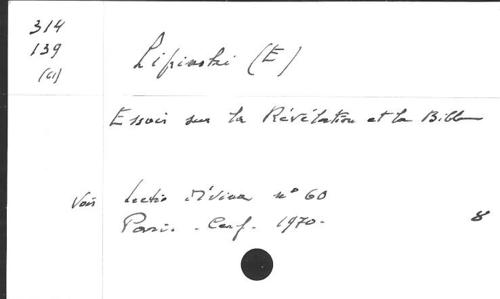 314
139
(CI)
Lipinski (E)
Essais sur la Révélation et la Bible
Voir Lectio Divina n° 60
Paris - Cerf - 1970 -
8